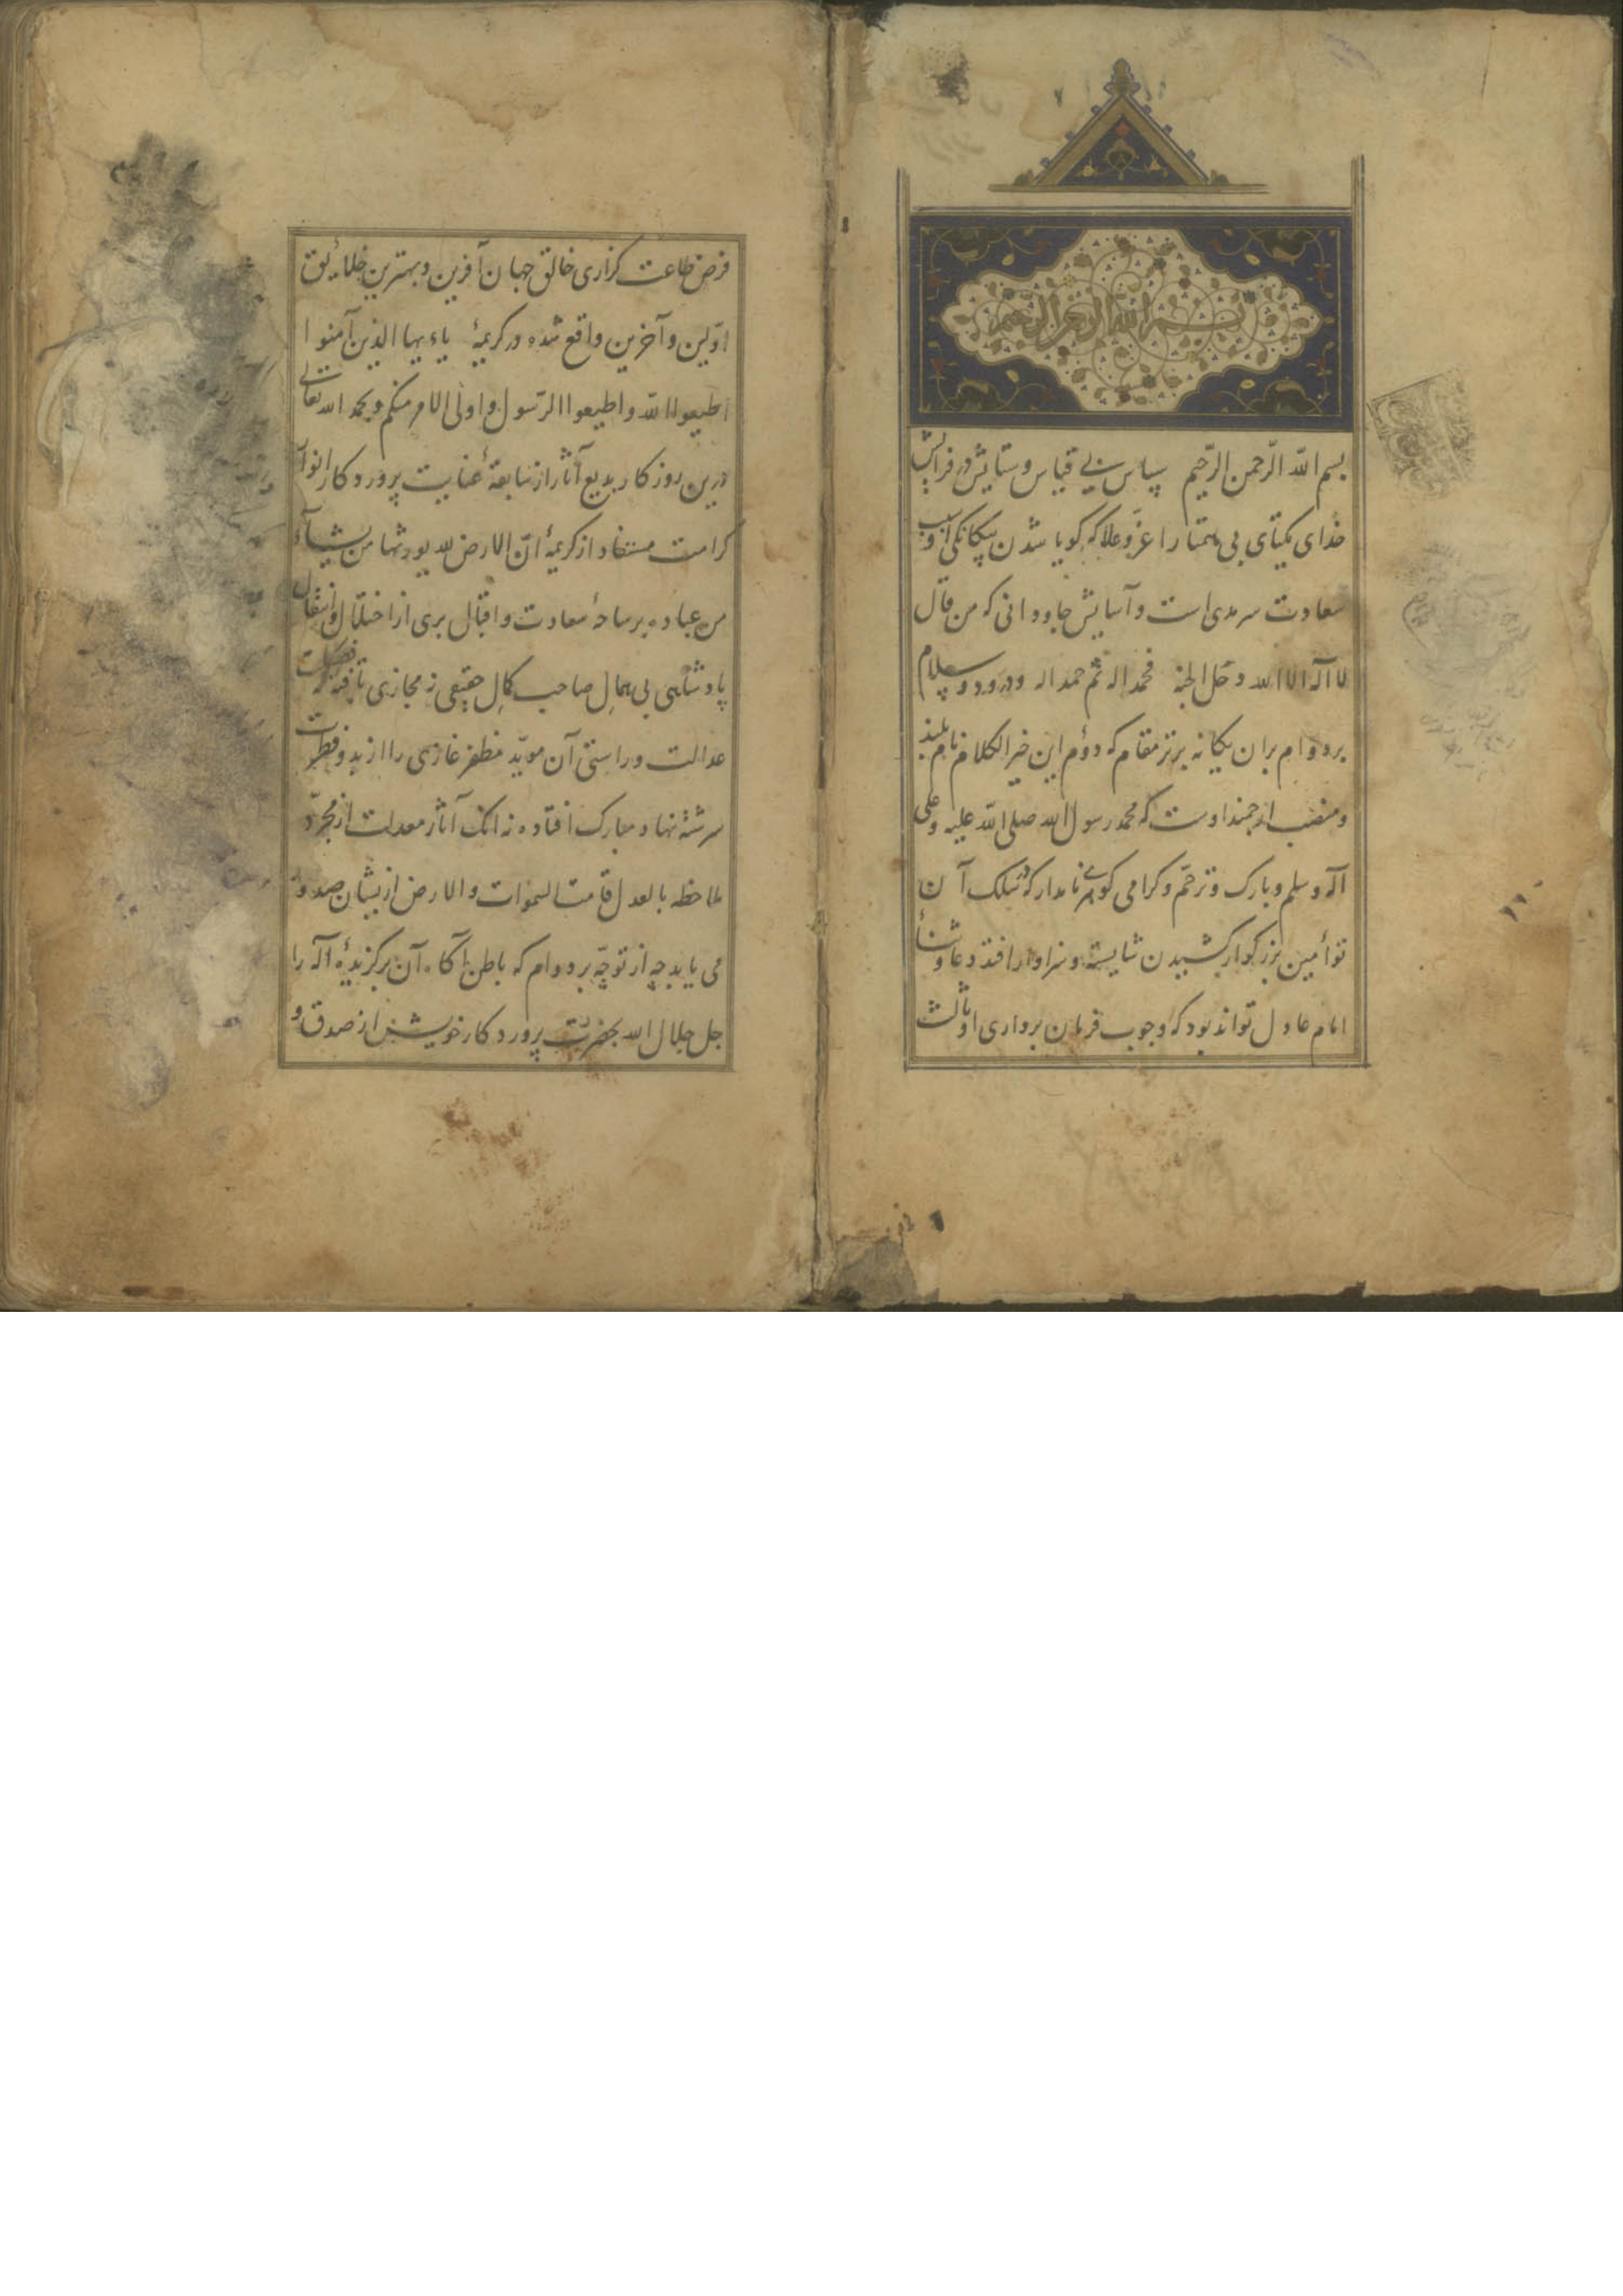 بسم الله الرحمن الرحیم
بسم الله الرّحمن الرّحیم سپاس بی قیاس و ستایش در فرایش
خدای یکتای بی همتا را عزّ و علا که گویا شدن بیگانگی او
سعادت سرمدی است و آسایش جاودانی که من قال
لا اله الا الله دخل الجنة فحمدا له ثم حمدا له و درود و سلام
بر دوام بران یگانه برتر مقام که دوم این خیر الکلام نام بلند
و منصب ارجمند اوست که محمد رسول الله صلی الله علیه و علی
آله و سلم و بارک و ترحّم و گرامی گوهری نامدار که در سلک آن
توأمین بزرگوار کشیدن شایسته و سزاوار افتد دعا و ثنأ
امام عادل تواند بود که وجوب فرمان برداری او ثالث
فرض طاعت گزاری خالق جهان آفرین و بهترین خلائق
اوّلین و آخرین واقع شده در کریمهٔ یاءیها الذین آمنوا
اطیعوا الله و اطیعوا الرّسول و اولی الامر منکم و بحمد الله تعالی
درین روزکار بدیع آثار از سابقهٔ عنایت پروردکار انوار
کرامت مستفاد از کریمهٔ انّ الارض لله یورثها من یشآء
من عباده بر ساحهٔ سعادت و اقبال بری از اختلال و انتقال
پادشاهی بی همال صاحب کمال حقیقی نه مجازی تافته که
عدالت و راستی آن مویّد مظفر غازی را از بدو فطرت
سرشتهٔ نهاد مبارک افتاده نه انک آثار معدلت از مجرّد
ملاحظه بالعدل قامت السموات و الارض ازیشان صدور
می یابد چه از توجّه بر دوام که باطن آگاه آن برگزیدهٔ اله را
جل جلال الله بحضرت پروردکار خویش از صدق و